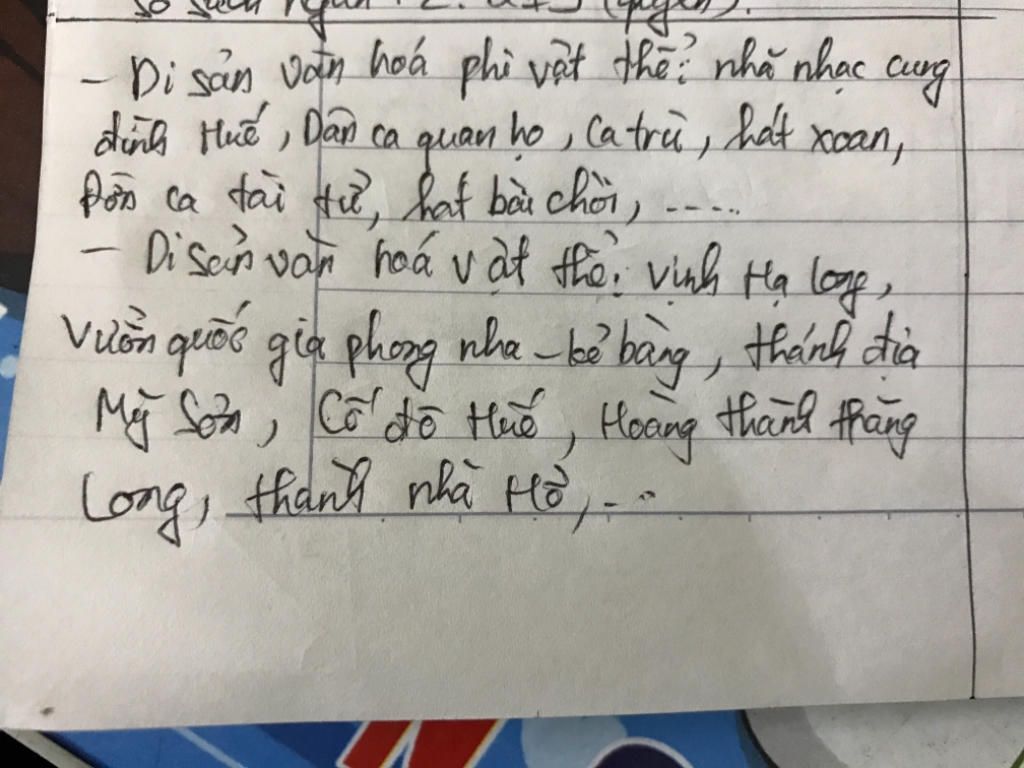 - Di sản văn hoá phi vật thể: nhã nhạc cung
đình Huế, Dân ca quan họ, ca trù, hát xoan,
Đờn ca tài tử, hát bài chòi, .....
- Di sản văn hoá vật thể: vịnh Hạ long,
Vườn quốc gia phong nha - kẻ bàng, thánh địa
Mỹ Sơn, Cố đô Huế, Hoàng thành thăng
Long, thành nhà Hồ, ...